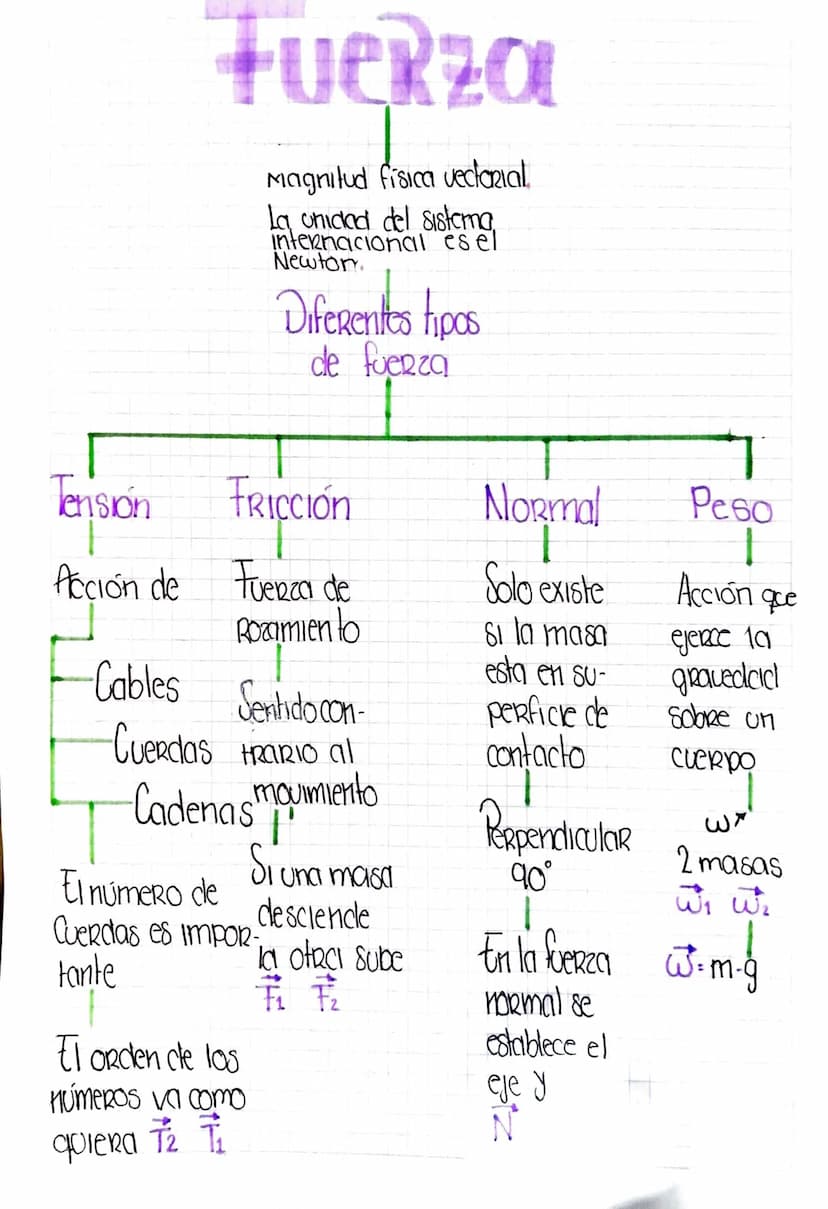 Fuerza
Magnitud física vectorial.
La unidad del sistema
internacional es el
Newton.
Diferentes tipos
de fuerza
Tensión
Acción de
Cables
Cuerdas
Cadenas
El número de
Cuerdas es impor-
tante
El orden de los
números va como
quiera T⃗2 T⃗1
Fricción
Fuerza de
Rozamiento
Sentido con-
trario al
movimiento
Si una masa
desciende
la otra sube
F⃗1 F⃗2
Normal
Solo existe
si la masa
esta en su-
perficie de
contacto
Perpendicular
90°
En la fuerza
normal se
establece el
eje y
N⃗
Peso
Acción que
ejerce la
gravedad
sobre un
cuerpo
ω
2 masas
ω⃗1 ω⃗2
ω⃗=m·g